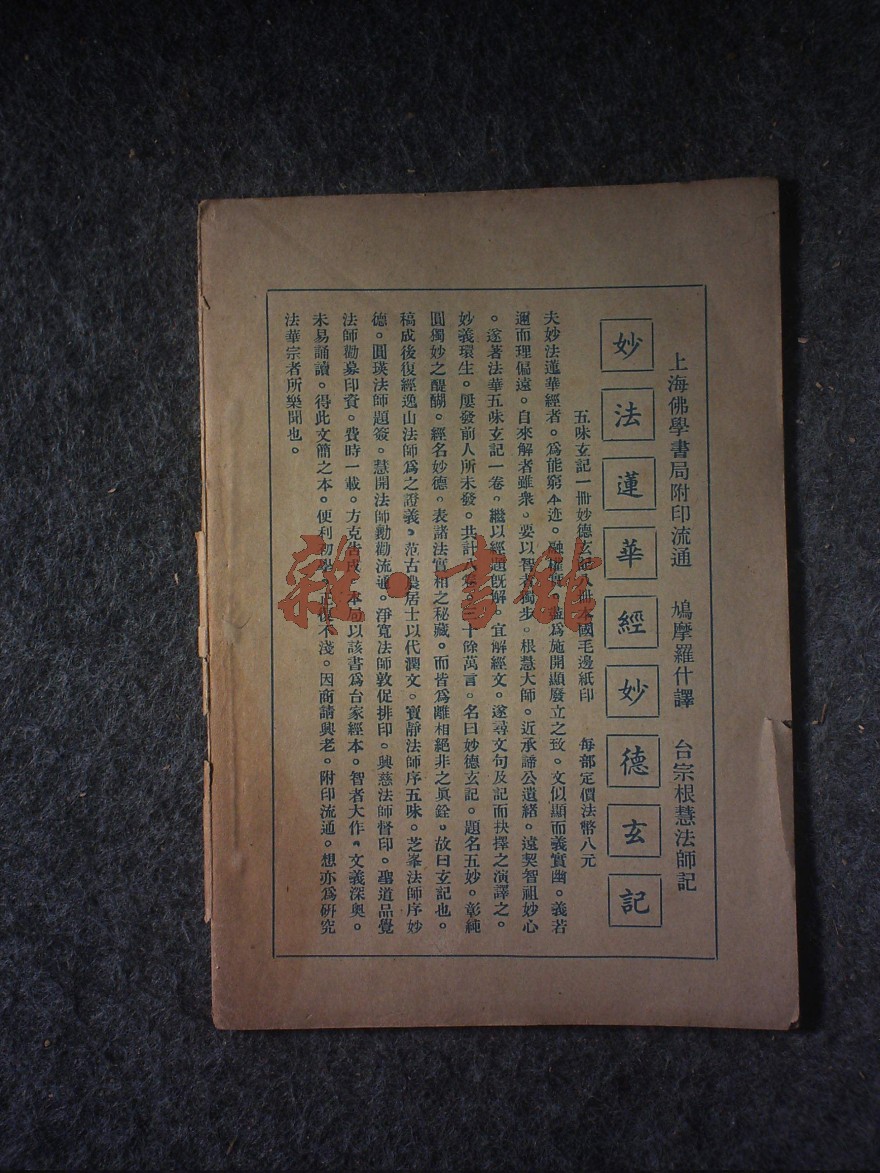 上海佛學書局附印流通　鳩摩羅什譯　台宗根慧法師記
妙法蓮華經妙德玄記
五味玄記一冊妙德玄記八冊本國毛邊紙印　每部定價法幣八元
夫妙法蓮華經者。爲能窮本迹。融權實。盡爲施開顯廢立之致。文似顯而義實幽。義若
邇而理偏遠。自來解者雖衆。要以智者獨步。根慧大師。近承諦公遺緒。遠契智祖妙心
。遂著法華五味玄記一卷。繼以經題旣解。宜解經文。遂尋文句及記而抉擇之演譯之。
妙義環生。屢發前人所未發。共計八 十餘萬言。名曰妙德玄記。題名五妙。彰純
圓獨妙之醍醐。經名妙德。表諸法實相之秘藏。而皆爲離相絕非之眞銓。故曰玄記也。
稿成後復經逸山法師爲之證義。范古農居士以代潤文。寶靜法師序五味。芝峯法師序妙
德。圓瑛法師題簽。慧開法師勸流通。淨寬法師敦促排印。興慈法師督印。聖道品覺
法師勸募印資。費時一載。方克告成。本局以該書爲台家經本。智者大作。文義深奥。
未易誦讀。得此文簡之本。便利初學。正復不淺。因商請興老。附印流通。想亦爲研究
法華宗者所樂聞也。
雜·書館